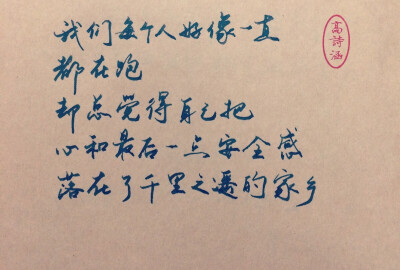 我们每个人好像一直
都在跑
却总觉得自己把
心和最后一点安全感
落在了千里之遥的家乡
高詩涵